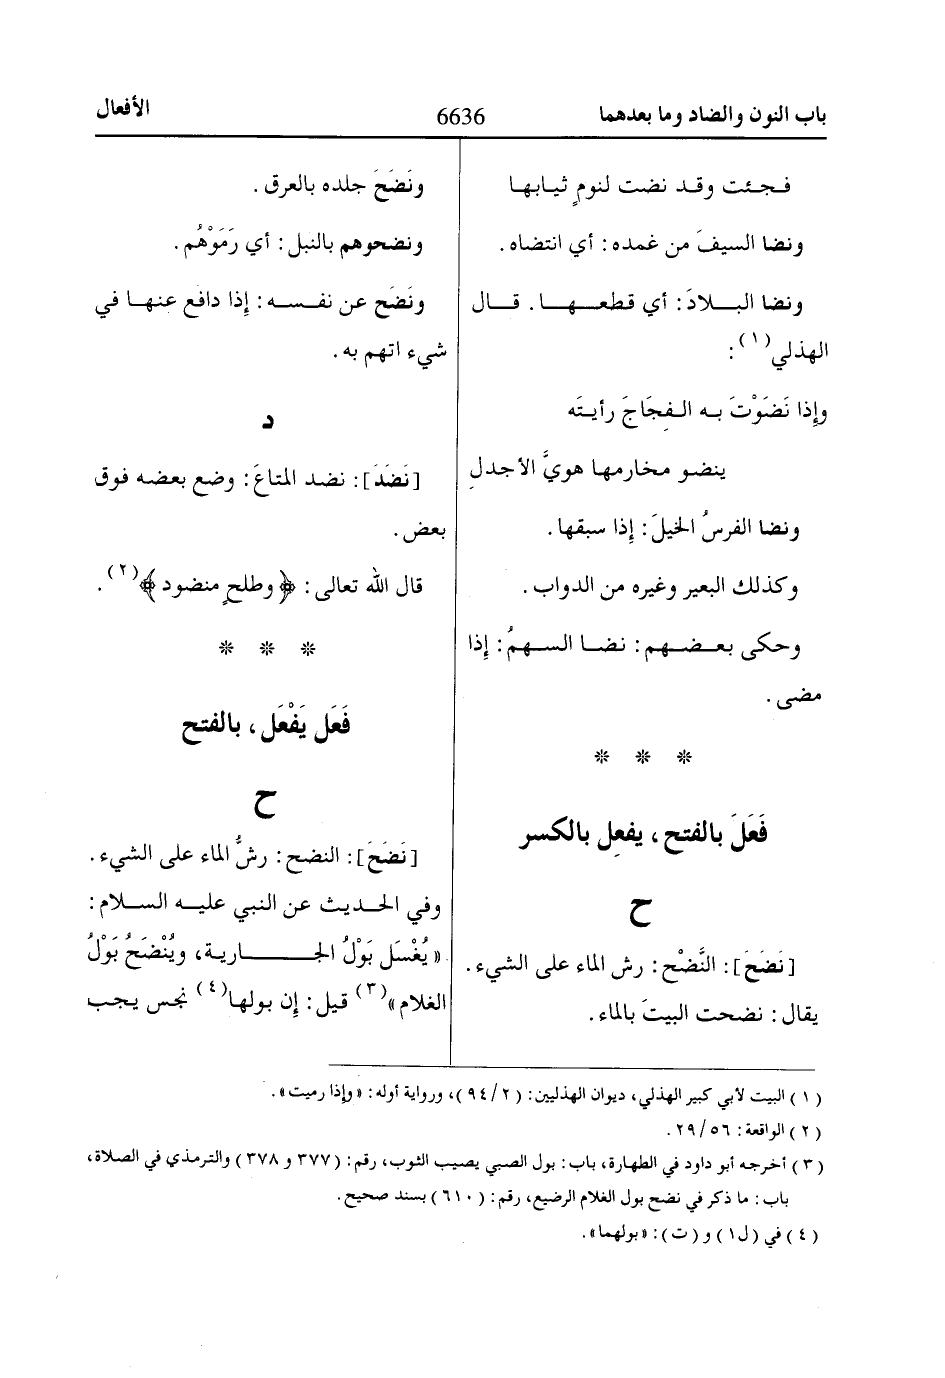 باب النون والضاد وما بعدهما 6636 الأفعال
فـجـئت وقـد نضت لنومٍ ثيـابهـا
ونضا السيفَ من غمده: أي انتضاه.
ونضا البـلادَ: أي قطعـهـا. قـال
الهذلي(١):
وإِذا نَضَوْتَ بـه الـفِجَاجَ رأيـتَه
ينضـو مخارمهـا هويَّ الأجدلِ
ونضا الفرسُ الخيلَ: إِذا سبقها.
وكذلك البعير وغيره من الدواب.
وحكى بعـضـهم: نضـا السـهمُ: إِذا
مضى.
* * *
فَعَلَ بالفتح، يفعِل بالكسر
ح
[نَضَحَ]: النَّضْح: رش الماء على الشيء.
يقال: نضحت البيتَ بالماء.
ونَضَحَ جلده بالعرق.
ونضحوهم بالنبل: أي رَمَوْهُم.
ونَضَح عن نفسـه: إِذا دافع عنهـا في
شيء اتهم به.
د
[نَضَدَ]: نضد المتاعَ: وضع بعضه فوق
بعض.
قال الله تعالى: ﴿وطلحٍ منضود﴾(٢).
* * *
فَعَل يَفْعَل، بالفتح
ح
[نَضَحَ]: النضح: رشُّ الماء على الشيء.
وفي الحـديث عن النبي عليـه السـلام:
«يُغْسَل بَوْلُ الجـاريـة، ويُنْضَحُ بَوْلُ
الغلام»(٣) قيل: إِن بولها(٤) نجس يجب
(١) البيت لأبي كبير الهذلي، ديوان الهذليين: (٢/ ٩٤)، ورواية أوله: «وإذا رميت».
(٢) الواقعة: ٥٦/ ٢٩.
(٣) أخرجه أبو داود في الطهارة، باب: بول الصبي يصيب الثوب، رقم: (٣٧٧ و ٣٧٨) والترمذي في الصلاة،
باب: ما ذكر في نضح بول الغلام الرضيع، رقم: (٦١٠) بسند صحيح.
(٤) في (ل١) و(ت): «بولهما».